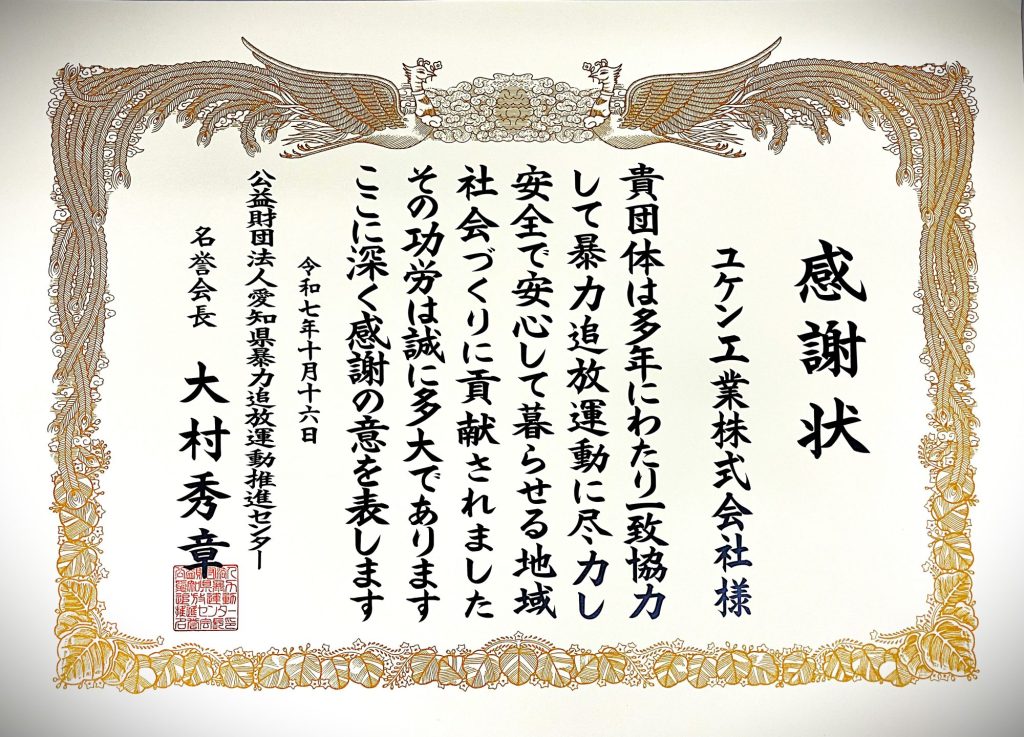 感謝状
ユケン工業株式会社様
貴団体は多年にわたり一致協力
して暴力追放運動に尽力し
安全で安心して暮らせる地域
社会づくりに貢献されました
その功労は誠に多大であります
ここに深く感謝の意を表します
令和七年十月十六日
公益財団法人愛知県暴力追放運動推進センター
名誉会長 大村秀章